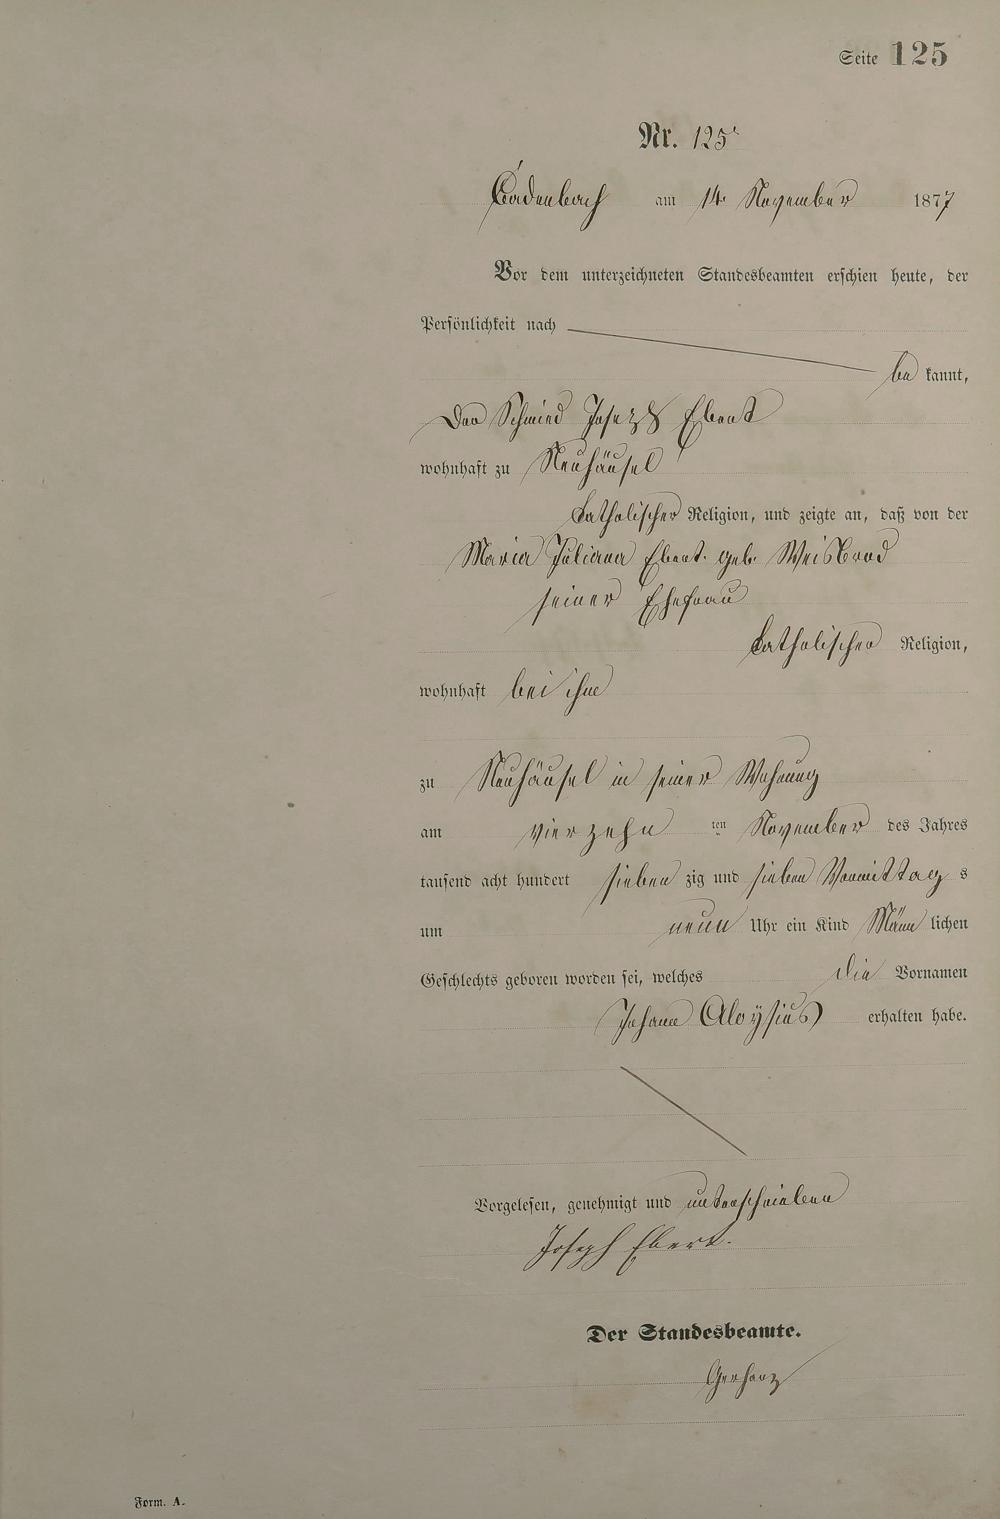 Seite 125
Nr. 125
Cadenbach am 14. November 1877
Vor dem unterzeichneten Standesbeamten erschien heute, der
Persönlichkeit nach
be kannt,
Der Schmied Joseph Ebert
wohnhaft zu Neuhäusel
katholischer Religion, und zeigte an, daß von der
Maria Juliana Ebert geb. Weisbrod
seiner Ehefrau
katholischer Religion,
wohnhaft bei ihm
zu Neuhäusel in seiner Wohnung
am vierzehn ten November des Jahres
tausend acht hundert sieben zig und sieben Vormittag s
um neun Uhr ein Kind Männ lichen
Geschlechts geboren worden sei, welches die Vornamen
Johann Aloysius erhalten habe.
Vorgelesen, genehmigt und unterschrieben
Joseph Ebert.
Der Standesbeamte.
Gerharz
Form. A.